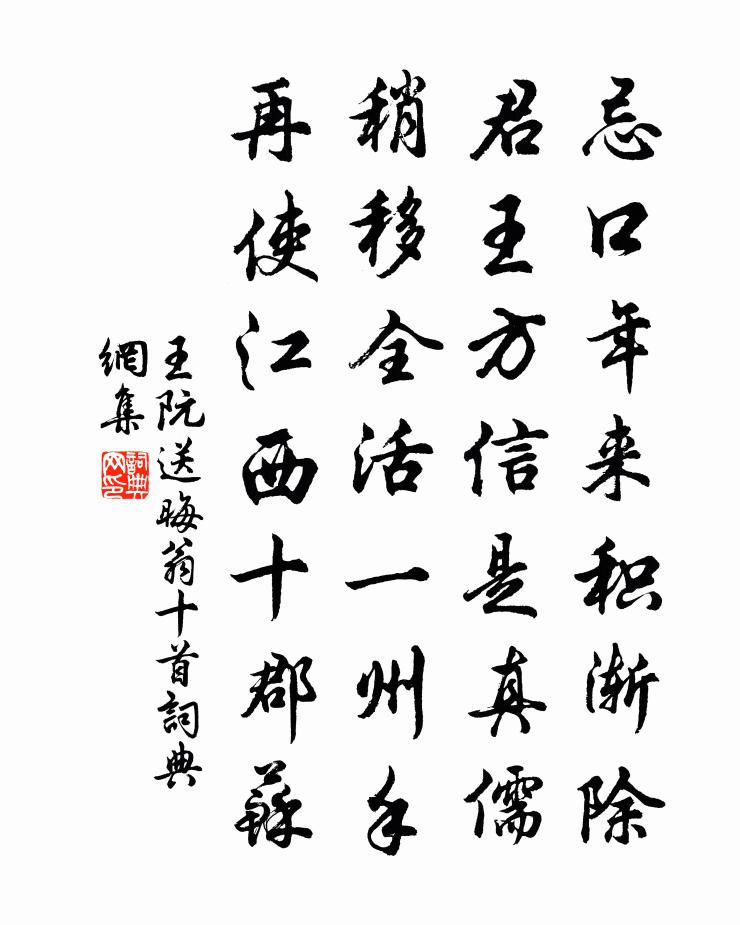 忌口年来积渐除
君王方信是真儒
稍移全活一州手
再使江西十郡蘇
王阮送晦翁十首詞典
網集
詞典
网印